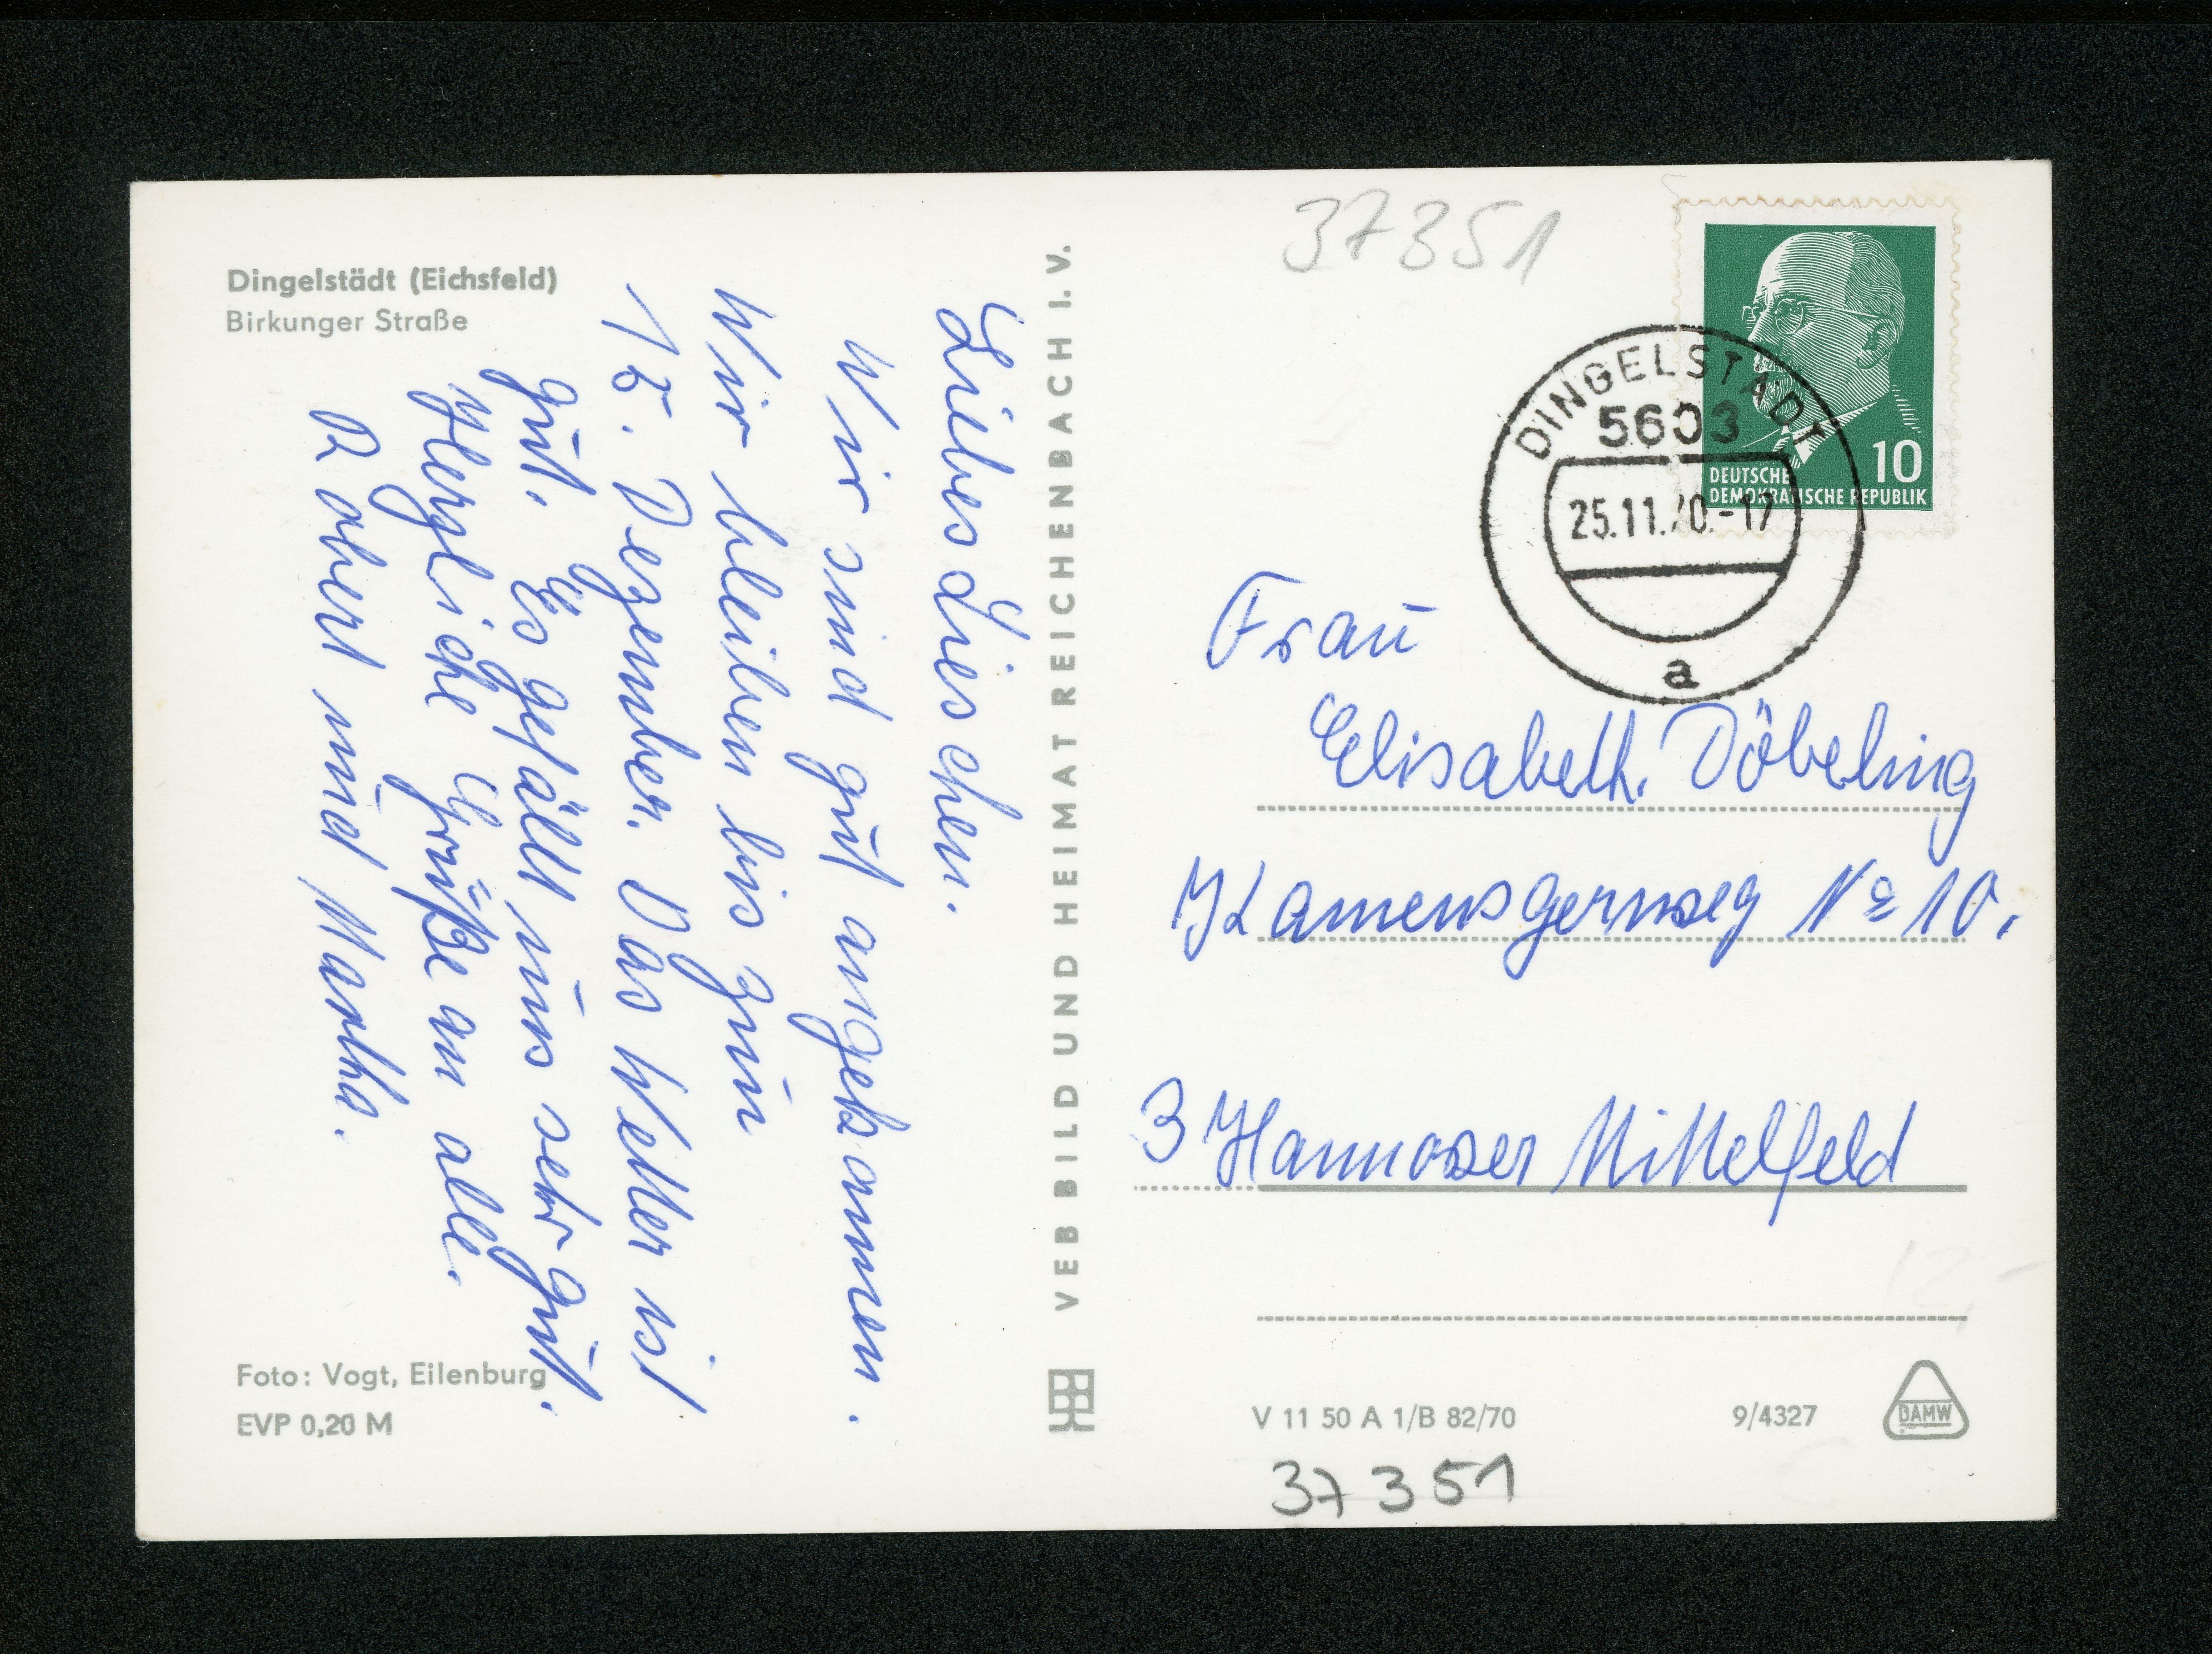 Dingelstädt (Eichsfeld)
Birkunger Straße
Liebes Lieschen.
Wir sind gut angekommen.
Wir bleiben bis zum
15. Dezember. Das Wetter ist
gut. Es gefällt uns sehr gut.
Herzliche Grüße an alle.
Robert und Martha.
Foto: Vogt, Eilenburg
EVP 0,20 M
VEB BILD UND HEIMAT REICHENBACH I. V.
37351
10
DEUTSCHE
DEMOKRATISCHE REPUBLIK
DINGELSTÄDT
5603
25.11.70.-17
a
Frau
Elisabeth. Döbeling
No 10.
3 Hannover Mittelfeld
V 11 50 A 1/B 82/70
9/4327
DAMW
37351